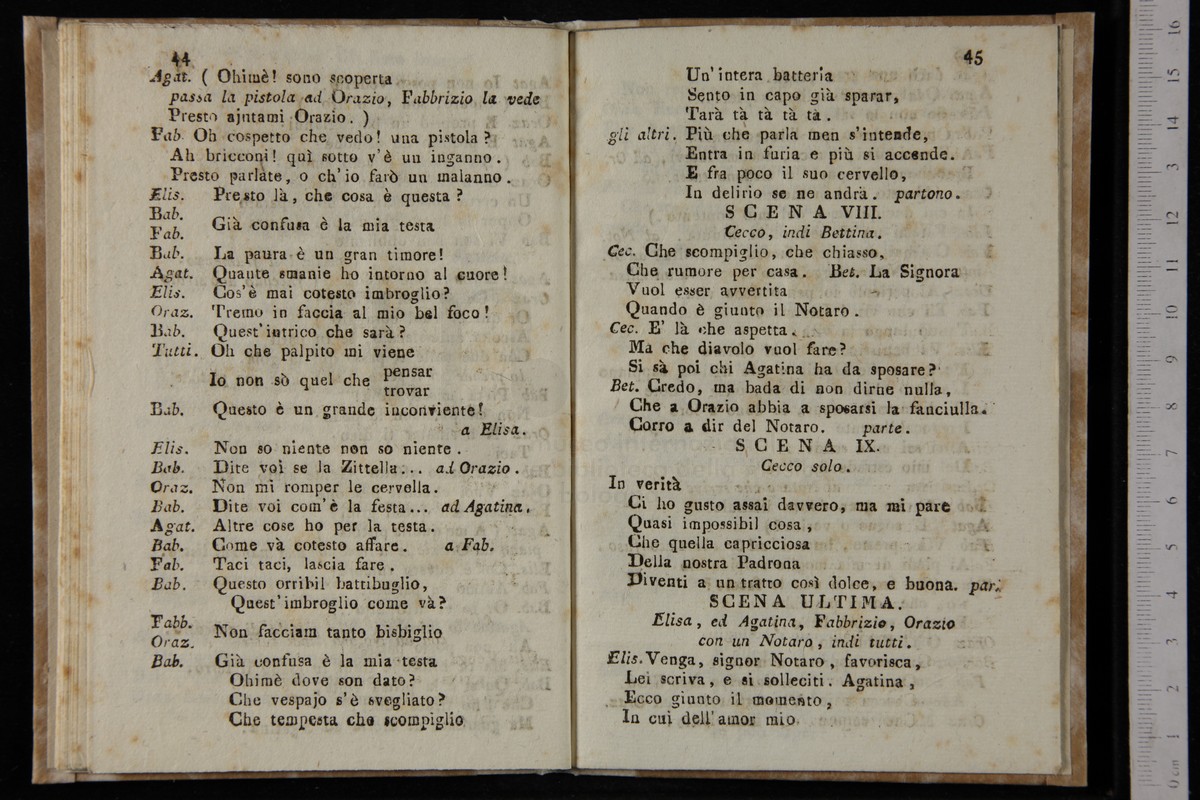 44
Agat. ( Ohimè! sono scoperta
passa la pistola ad Orazio, Fabbrizio la vede
Presto ajutami Orazio. )
Fab. Oh cospetto che vedo! una pistola?
Ah bricconi! quì sotto v'è un inganno.
Presto parlate, o ch'io farò un malanno.
Elis. Presto là, che cosa è questa?
Bab.
Fab. Già confusa è la mia testa
Bab. La paura è un gran timore!
Agat. Quante smanie ho intorno al cuore!
Elis. Cos'è mai cotesto imbroglio?
Oraz. Tremo in faccia al mio bel foco!
Bab. Quest'intrico che sarà?
Tutti. Oh che palpito mi viene
Io non sò quel che pensar
trovar
Bab. Questo è un grande inconviente!
a Elisa.
Elis. Non so niente non so niente.
Bab. Dite voi se la Zittella... ad Orazio.
Oraz. Non mi romper le cervella.
Bab. Dite voi com'è la festa... ad Agatina.
Agat. Altre cose ho per la testa.
Bab. Come và cotesto affare. a Fab.
Fab. Taci taci, lascia fare.
Bab. Questo orribil battibuglio,
Quest'imbroglio come và?
Fabb.
Oraz. Non facciam tanto bisbiglio
Bab. Già confusa è la mia testa
Ohimè dove son dato?
Che vespajo s'è svegliato?
Che tempesta che scompiglio
45
Un'intera batteria
Sento in capo già sparar,
Tarà tà tà tà tà.
gli altri. Più che parla men s'intende,
Entra in furia e più si accende.
E fra poco il suo cervello,
In delirio se ne andrà. partono.
SCENA VIII.
Cecco, indi Bettina.
Cec. Che scompiglio, che chiasso,
Che rumore per casa. Bet. La Signora
Vuol esser avvertita
Quando è giunto il Notaro.
Cec. E' là che aspetta.
Ma che diavolo vuol fare?
Si sà poi chi Agatina ha da sposare?
Bet. Credo, ma bada di non dirne nulla,
Che a Orazio abbia a sposarsi la fanciulla.
Corro a dir del Notaro. parte.
SCENA IX.
Cecco solo.
In verità
Ci ho gusto assai davvero, ma mi pare
Quasi impossibil cosa,
Che quella capricciosa
Della nostra Padrona
Diventi a un tratto così dolce, e buona. par.
SCENA ULTIMA.
Elisa, ed Agatina, Fabbrizio, Orazio
con un Notaro, indi tutti.
Elis. Venga, signor Notaro, favorisca,
Lei scriva, e si solleciti. Agatina,
Ecco giunto il momento,
In cui dell'amor mio
0 cm 1 2 3 4 5 6 7 8 9 10 11 12 13 14 15 16